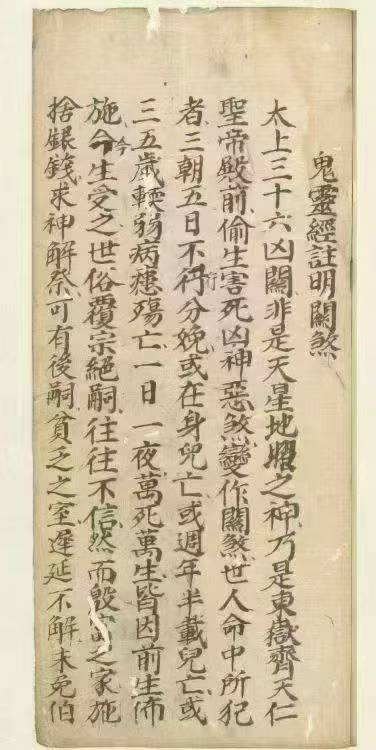 鬼靈經註明關煞
太上三十六凶關非是天星地曜之神乃是東嶽齊天仁
聖帝殿前偷生害死凶神惡煞變作關煞世人命中所犯
者三朝五日不得分娩或在身兒亡或週年半載兒亡或
三五歲輭弱病瘧殤亡一日一夜萬死萬生皆因前生佈
施今生受之世俗覆宗絕嗣往往不信然而殷富之家施
捨銀錢求神解祭可有後嗣貧乏之室遲延不解未免伯